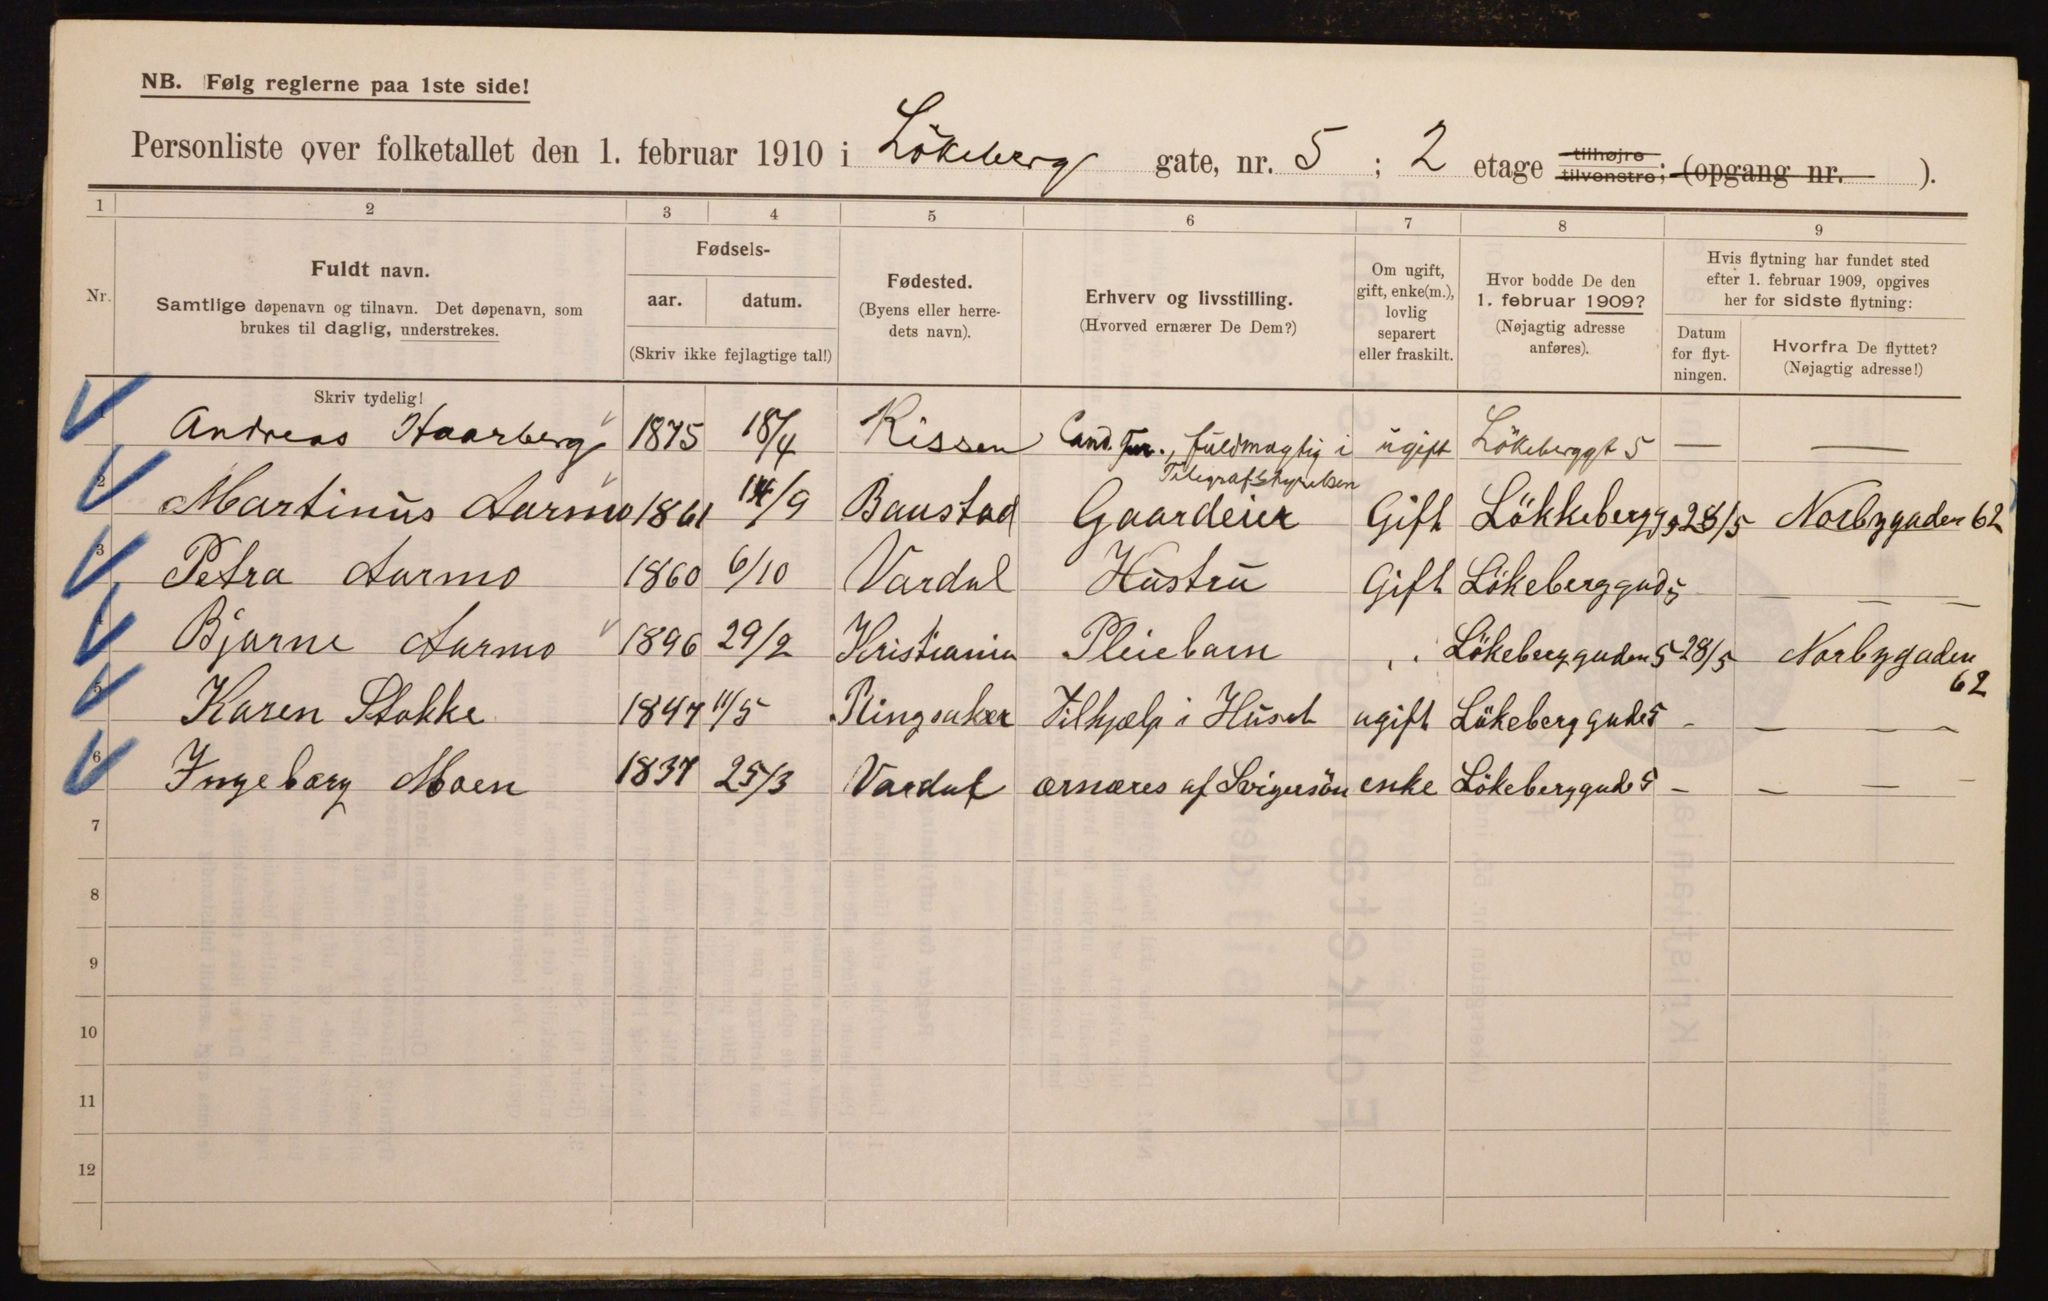 NB. Følg reglerne paa 1ste side!
Personliste over folketallet den 1. februar 1910 i Lökeberg gate, nr. 5 ; 2 etage tilhøjre tilvenstre; (opgang nr. ).
1 2 3 4 5 6 7 8 9
Nr.
Fuldt navn.
Samtlige døpenavn og tilnavn. Det døpenavn, som
brukes til daglig, understrekes.
Skriv tydelig!
Fødsels-
aar. datum.
(Skriv ikke fejlagtige tal!)
Fødested.
(Byens eller herre-
dets navn).
Erhverv og livsstilling.
(Hvorved ernærer De Dem?)
Om ugift,
gift, enke(m.),
lovlig
separert
eller fraskilt.
Hvor bodde De den
1. februar 1909?
(Nøjagtig adresse
anføres).
Hvis flytning har fundet sted
efter 1. februar 1909, opgives
her for sidste flytning:
Datum
for flyt-
ningen.
Hvorfra De flyttet?
(Nøjagtig adresse!)
1 Andreas Haarberg 1875 18/4 Rissen Cand. jur., fuldmægtig i Telegrafstyrelsen ugift Lökeberggt 5 — —
2 Martinus Aarmo 1861 14/9 Baustad Gaardeier Gift Lökkebergg 5 28/5 Norbygaden 62
3 Petra Aarmo 1860 6/10 Vardal Hustru Gift Lökeberggad 5 — — —
4 Bjarne Aarmo 1896 29/2 Kristiania Pleiebarn " Lökeberggaden 5 28/5 Norbygaden 62
5 Karen Stokke 1847 11/5 Ringsaker Tilhjælp i Huset ugift Lökeberggade 5 - — — —
6 Ingeborg Moen 1837 25/3 Vardal ærnæres af Svigersön enke Lökeberggade 5 - — — —
7
8
9
10
11
12